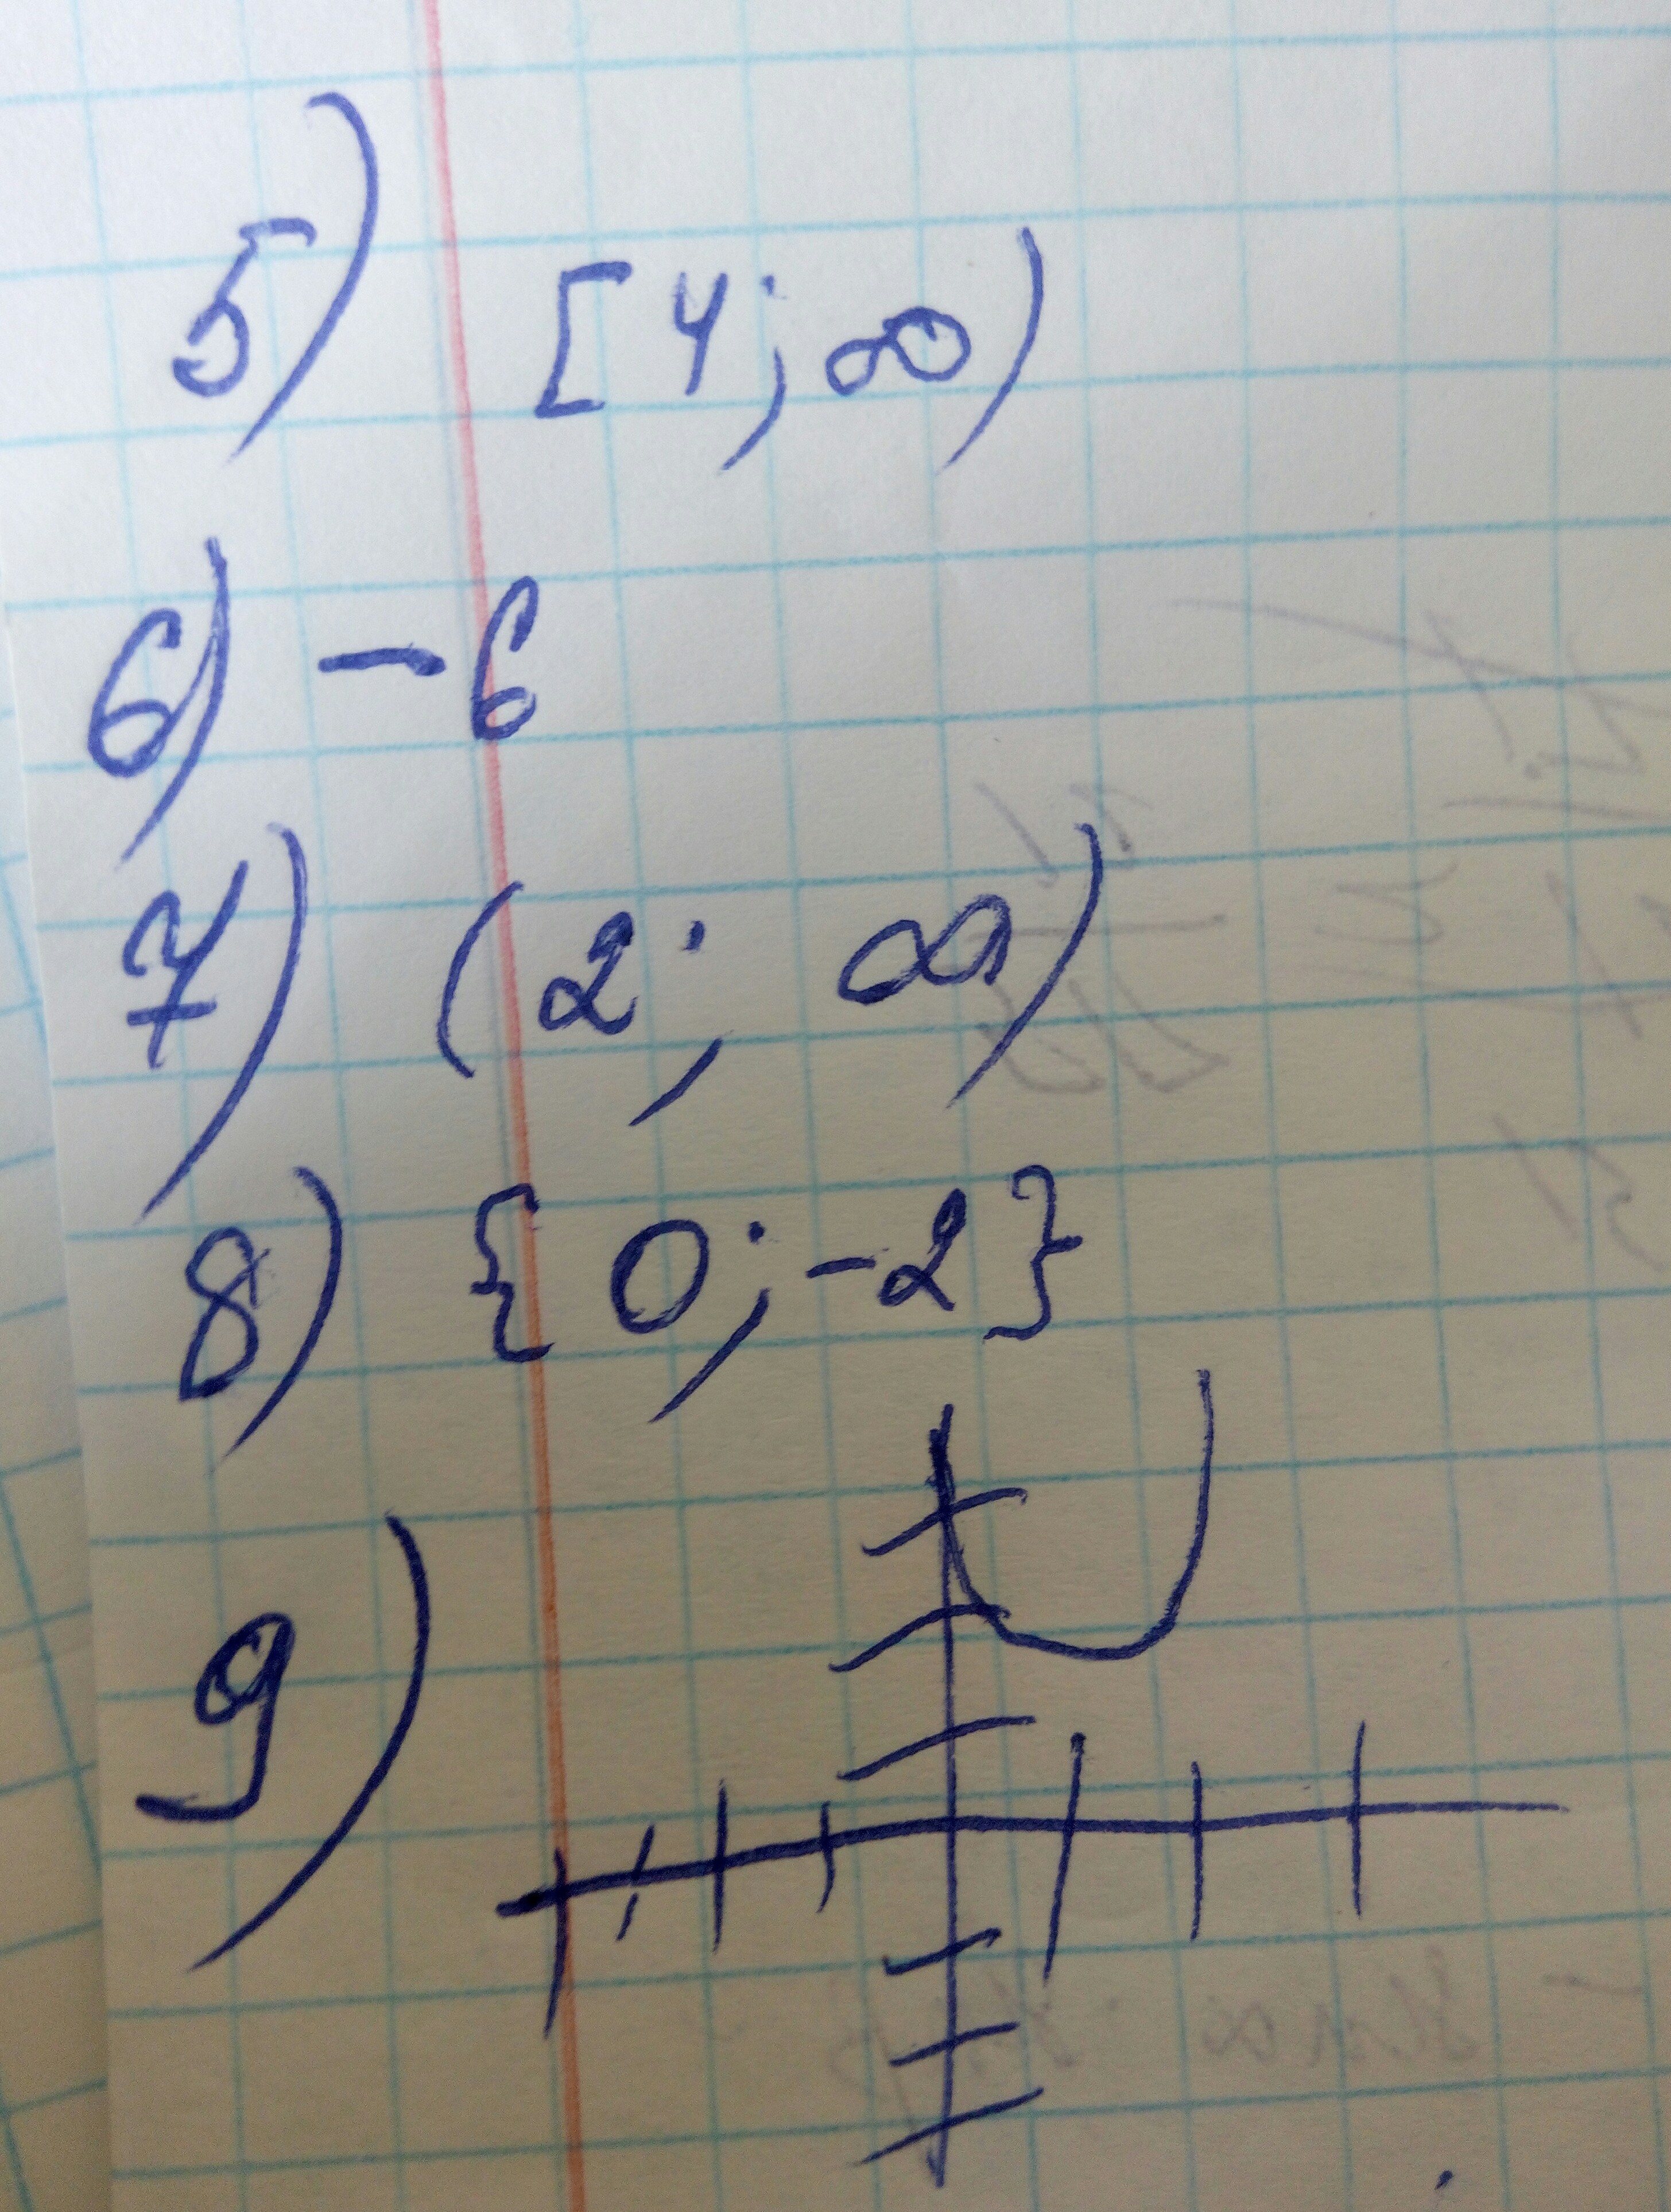 5) [4; ∞)
6) -6
7) (2; ∞)
8) {0; -2}
9)